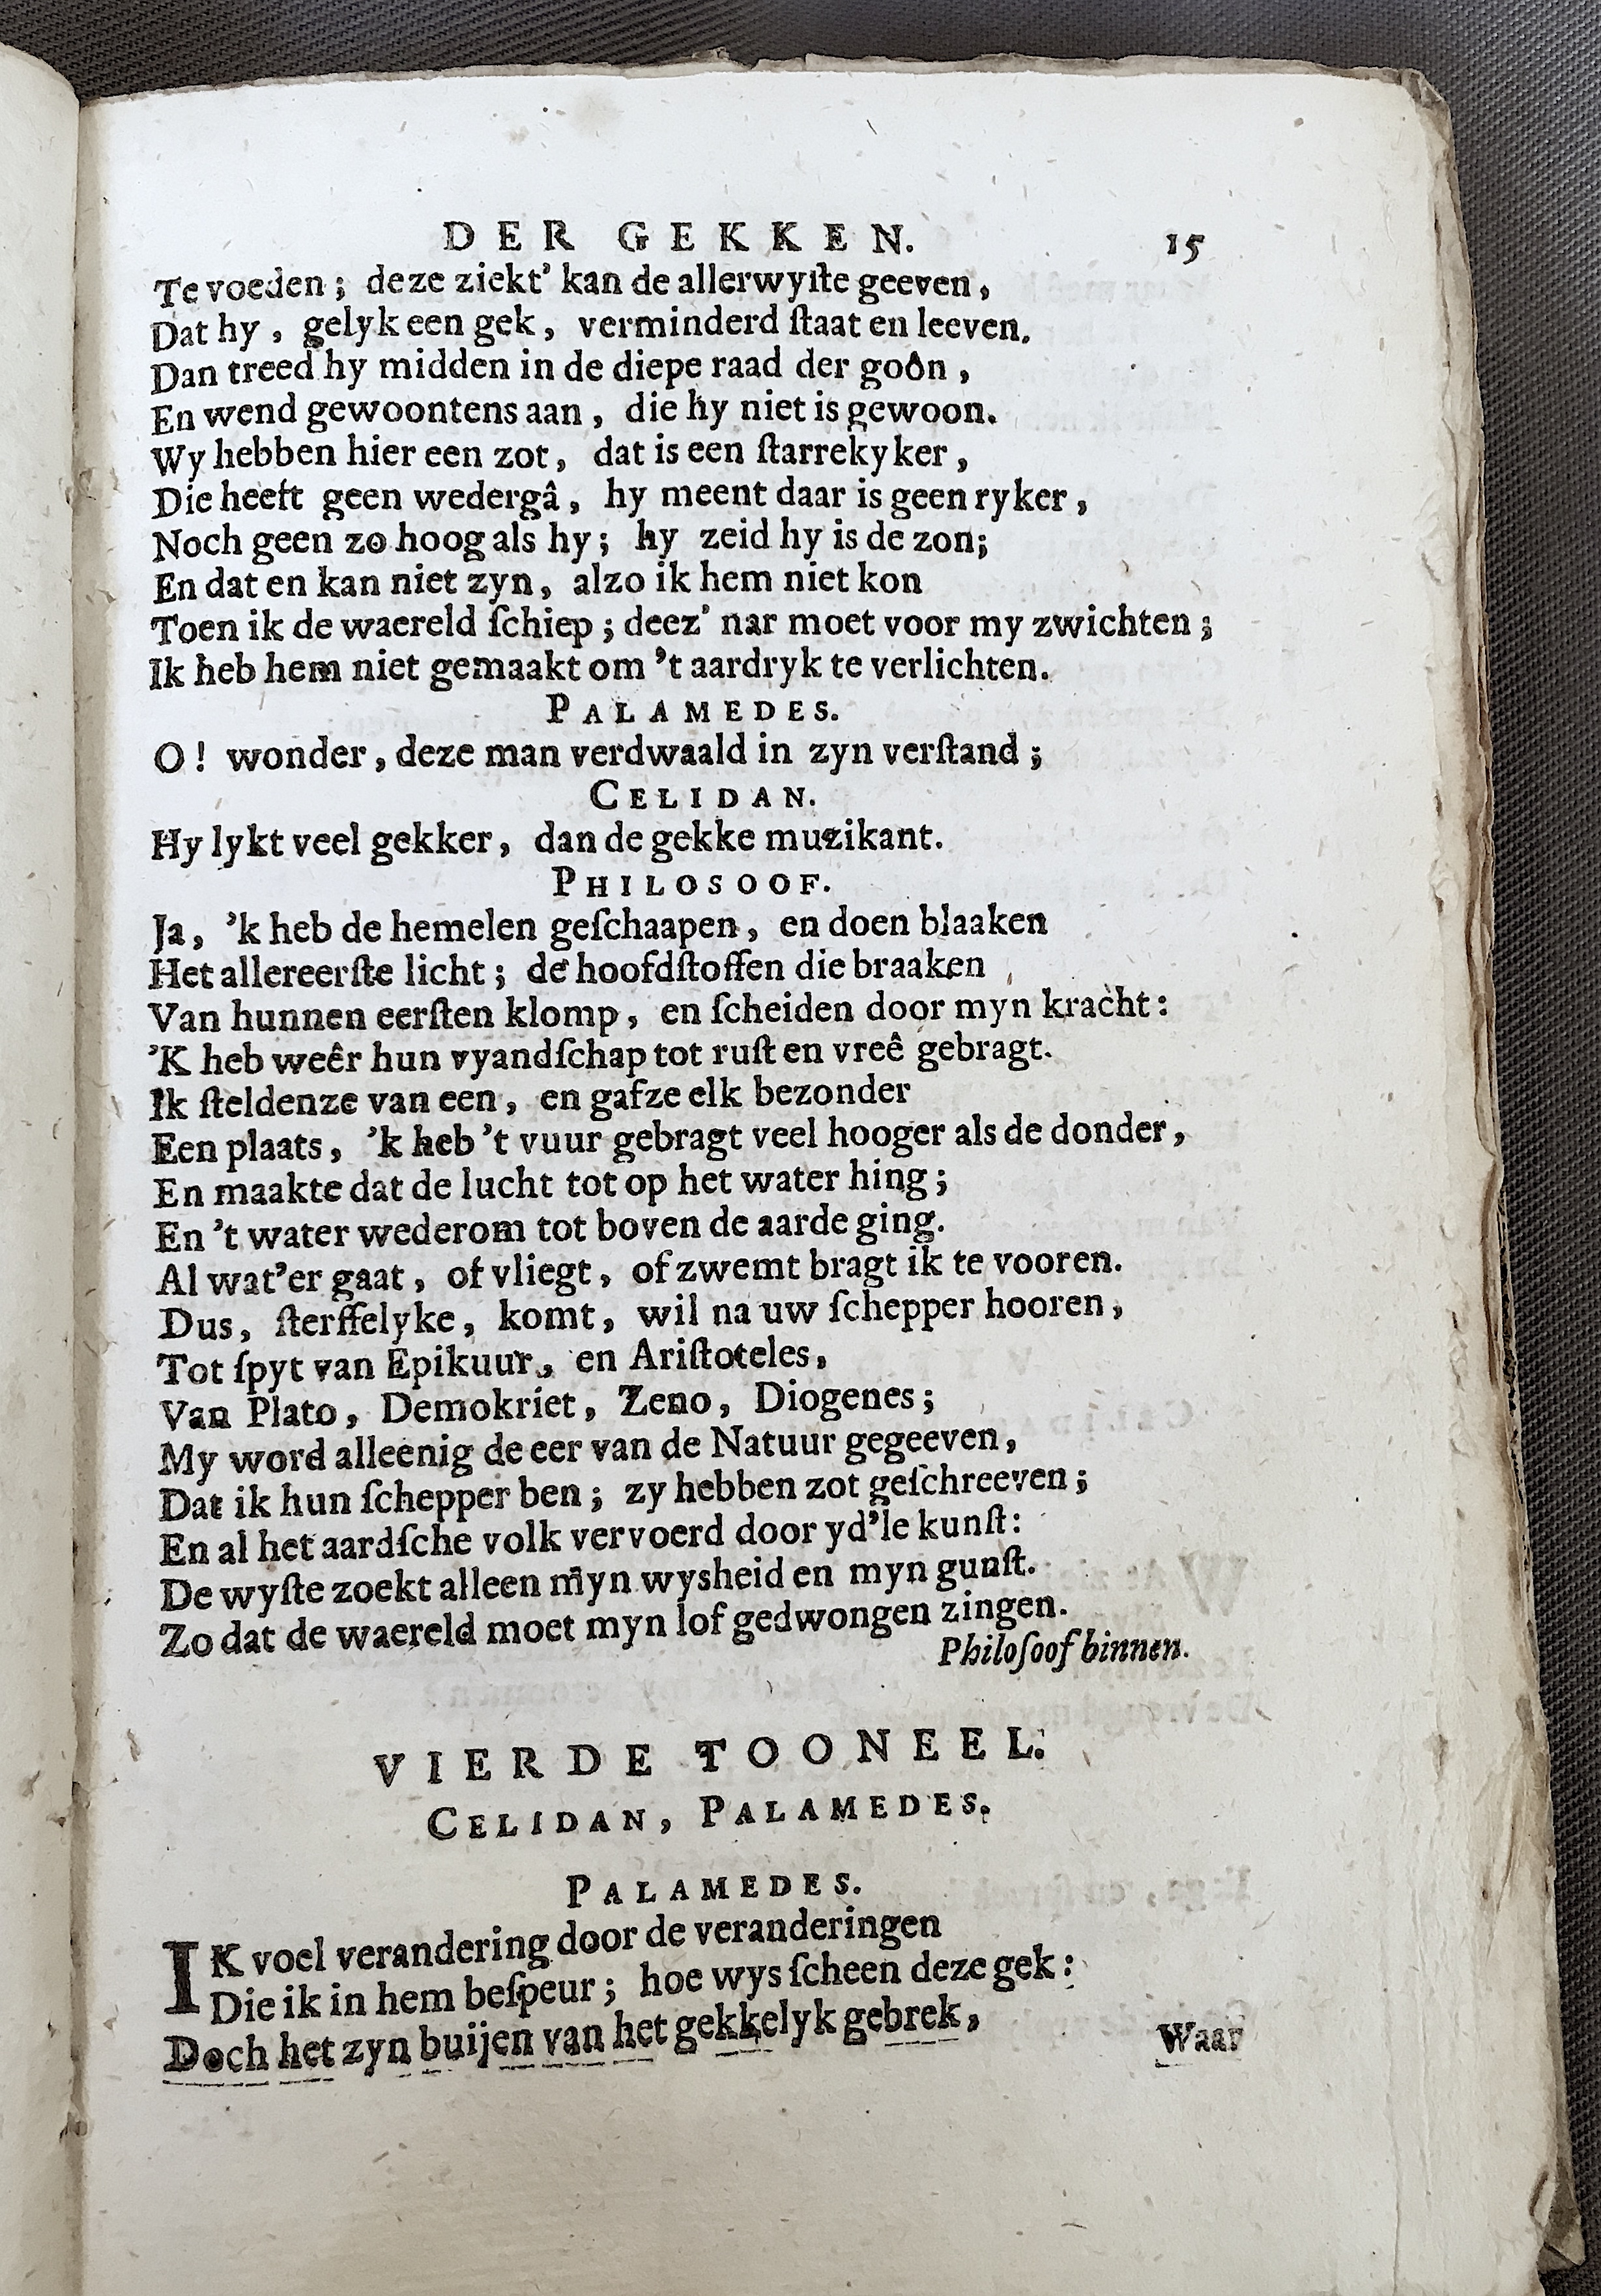 DER GEKKEN. 15
Te voeden; deze ziekt’ kan de allerwyſte geeven,
Dat hy, gelyk een gek, verminderd ſtaat en leeven.
Dan treed hy midden in de diepe raad der goôn,
En wend gewoontens aan, die hy niet is gewoon.
Wy hebben hier een zot, dat is een ſtarrekyker,
Die heeft geen wedergâ, hy meent daar is geen ryker,
Noch geen zo hoog als hy; hy zeid hy is de zon;
En dat en kan niet zyn, alzo ik hem niet kon
Toen ik de waereld ſchiep; deez’ nar moet voor my zwichten;
Ik heb hem niet gemaakt om ’t aardryk te verlichten.
PALAMEDES.
O! wonder, deze man verdwaald in zyn verſtand;
CELIDAN.
Hy lykt veel gekker, dan de gekke muzikant.
PHILOSOOF.
Ja, ’k heb de hemelen geſchaapen, en doen blaaken
Het allereerſte licht; de hoofdſtoffen die braaken
Van hunnen eerſten klomp, en ſcheiden door myn kracht:
’K heb weêr hun vyandſchap tot ruſt en vreê gebragt.
Ik ſteldenze van een, en gafze elk bezonder
Een plaats, ’k heb ’t vuur gebragt veel hooger als de donder,
En maakte dat de lucht tot op het water hing;
En ’t water wederom tot boven de aarde ging.
Al wat’er gaat, of vliegt, of zwemt bragt ik te vooren.
Dus, ſterffelyke, komt, wil na uw ſchepper hooren,
Tot ſpyt van Epikuur, en Ariſtoteles,
Van Plato, Demokriet, Zeno, Diogenes;
My word alleenig de eer van de Natuur gegeeven,
Dat ik hun ſchepper ben; zy hebben zot geſchreeven;
En al het aardſche volk vervoerd door yd’le kunſt:
De wyſte zoekt alleen myn wysheid en myn gunſt.
Zo dat de waereld moet myn lof gedwongen zingen.
Philoſoof binnen.
VIERDE TOONEEL.
CELIDAN, PALAMEDES.
PALAMEDES.
IK voel verandering door de veranderingen
Die ik in hem beſpeur; hoe wys ſcheen deze gek:
Doch het zyn buijen van het gekkelyk gebrek,
Waar